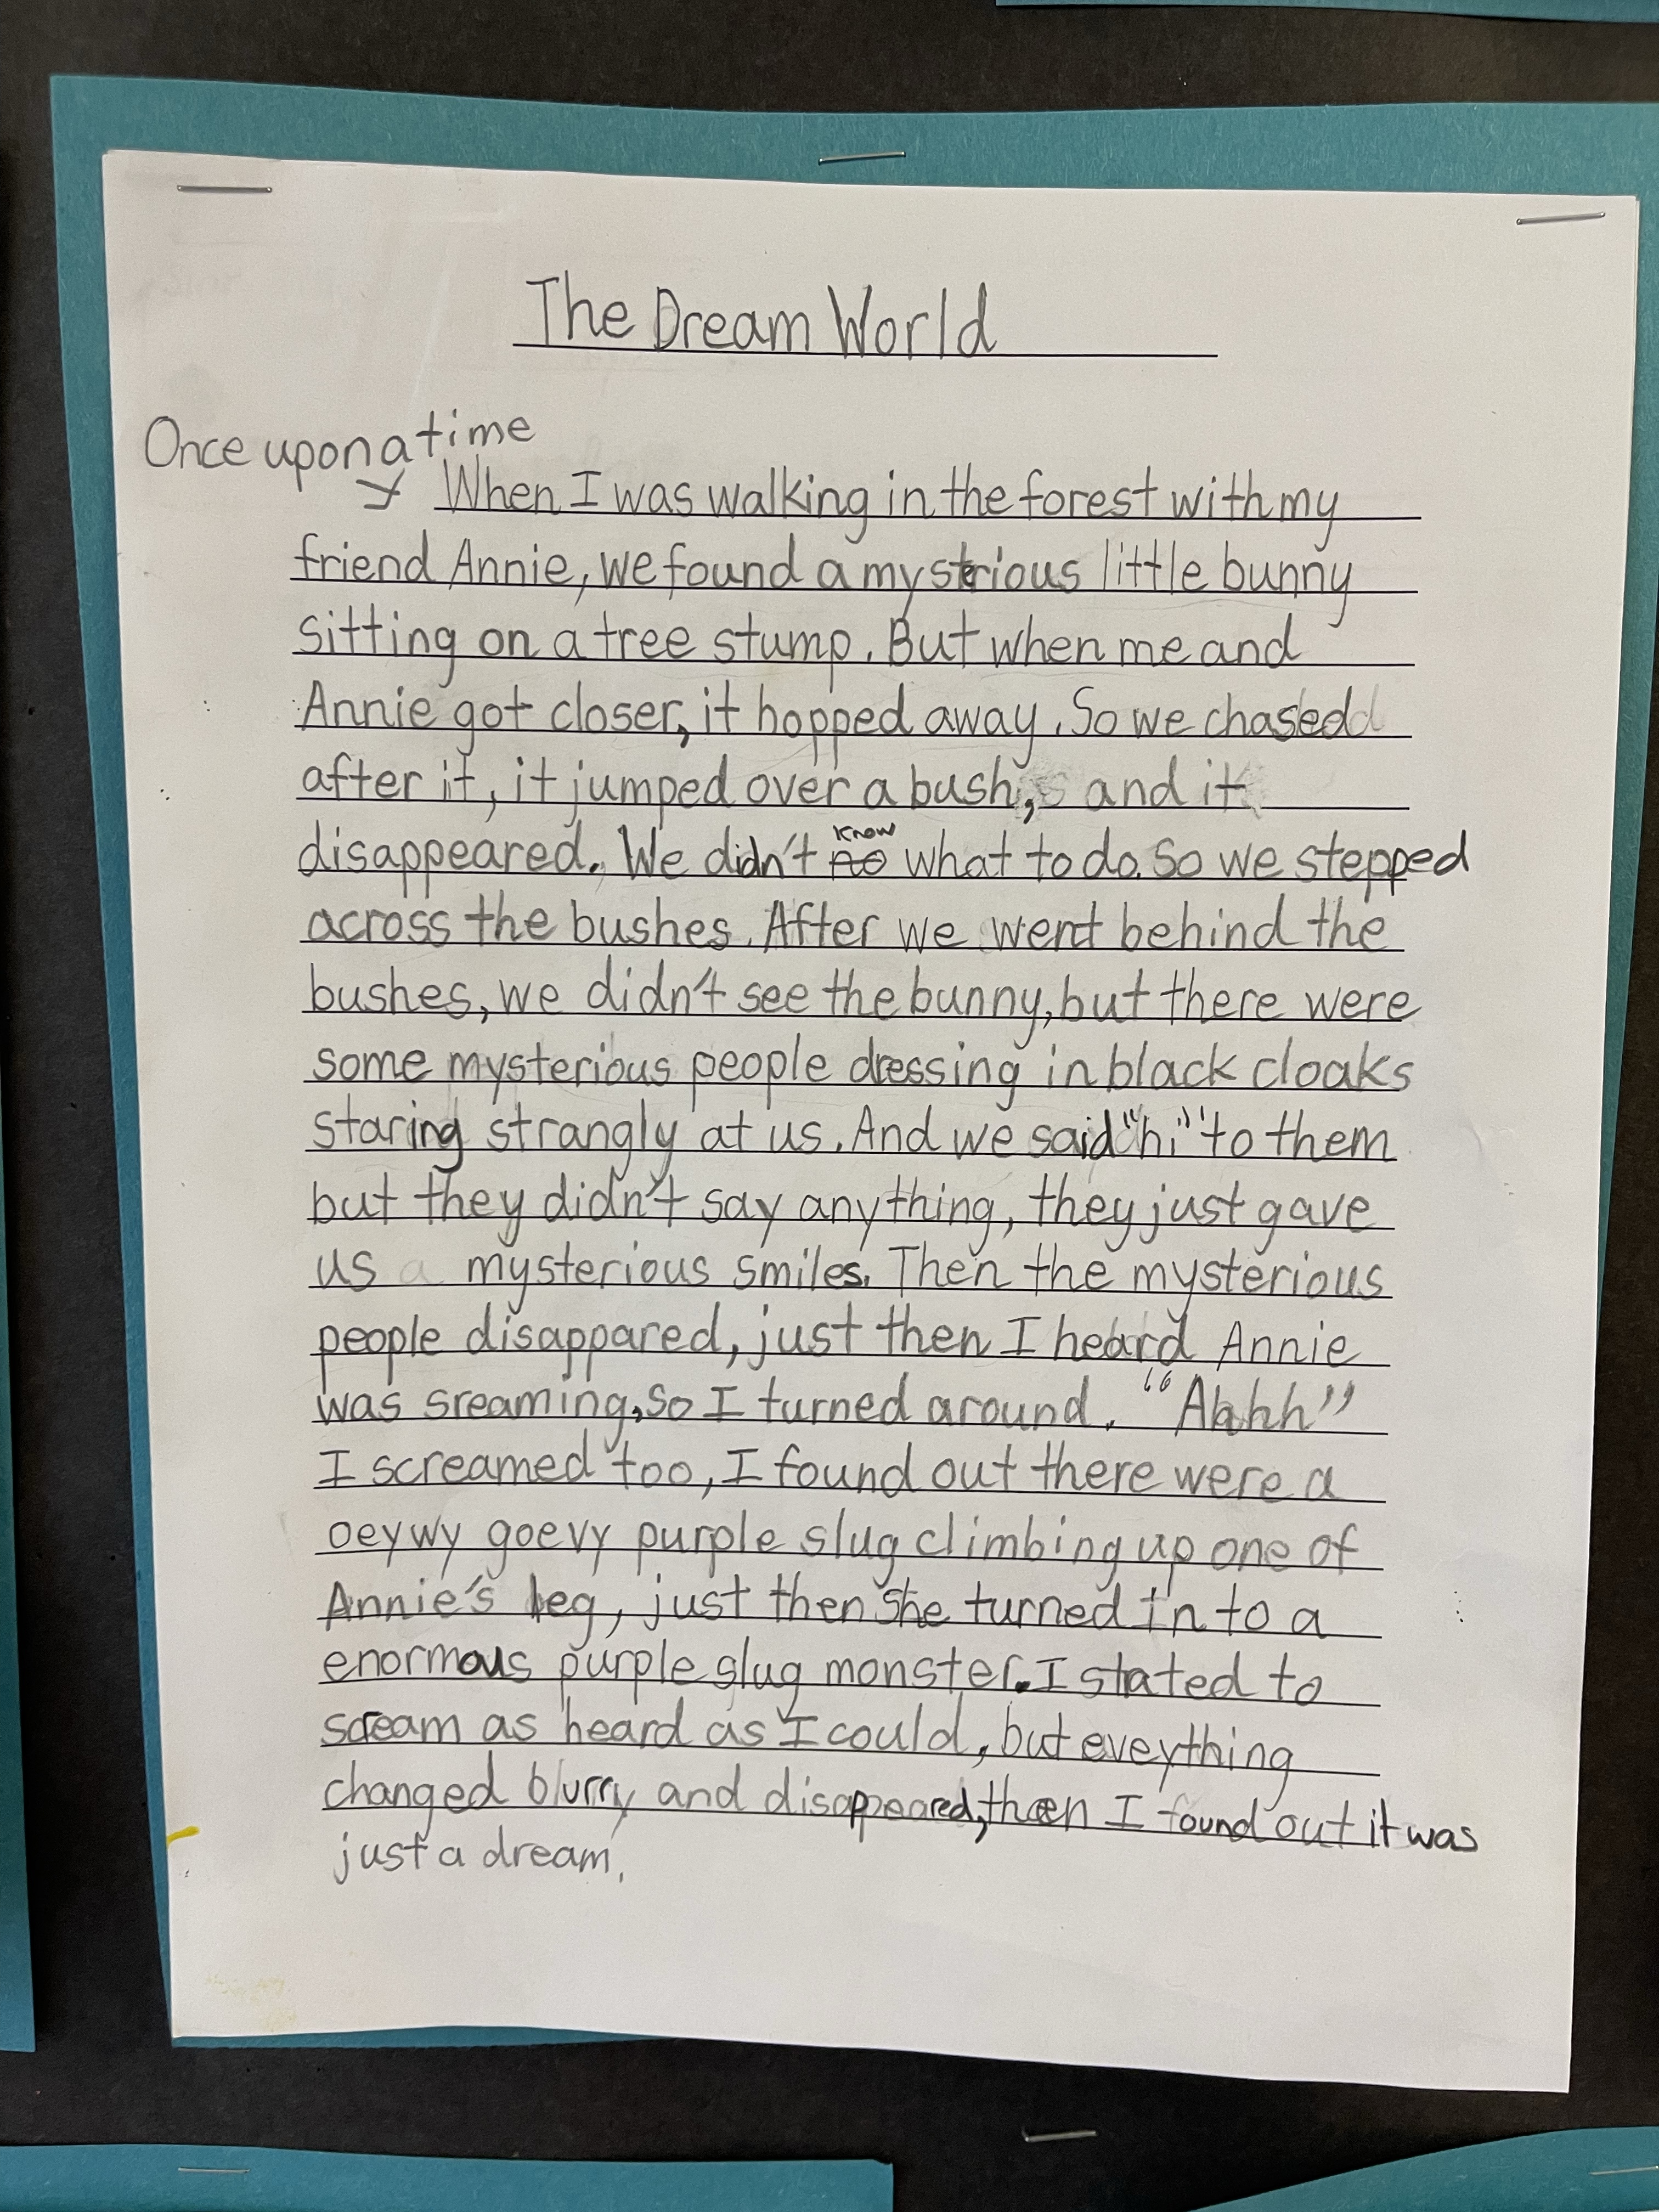 The Dream World
Once upon a time
When I was walking in the forest with my
friend Annie, we found a mysterious little bunny
sitting on a tree stump. But when me and
Annie got closer, it hopped away. So we chased
after it, it jumped over a bush, and it
disappeared. We didn't know what to do. So we stepped
across the bushes. After we went behind the
bushes, we didn't see the bunny, but there were
some mysterious people dressing in black cloaks
staring strangly at us. And we said "hi" to them
but they didn't say anything, they just gave
us mysterious smiles. Then the mysterious
people disappared, just then I heard Annie
was sreaming, so I turned around. "Ahhh"
I screamed too, I found out there were a
oeywy goevy purple slug climbing up one of
Annie's leg, just then she turned in to a
enormous purple slug monster. I stated to
scream as heard as I could, but eveything
changed blurry and disappeared, then I found out it was
just a dream.